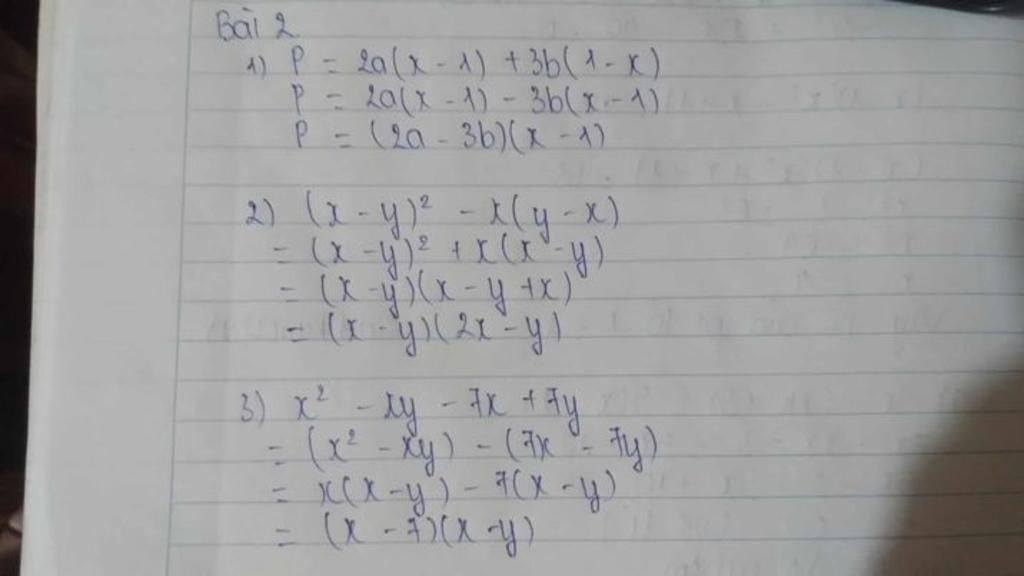 Bài 2
1) P = 2a(x - 1) + 3b(1 - x)
P = 2a(x - 1) - 3b(x - 1)
P = (2a - 3b)(x - 1)
2) (x - y)² - x(y - x)
= (x - y)² + x(x - y)
= (x - y)(x - y + x)
= (x - y)(2x - y)
3) x² - xy - 7x + 7y
= (x² - xy) - (7x - 7y)
= x(x - y) - 7(x - y)
= (x - 7)(x - y)